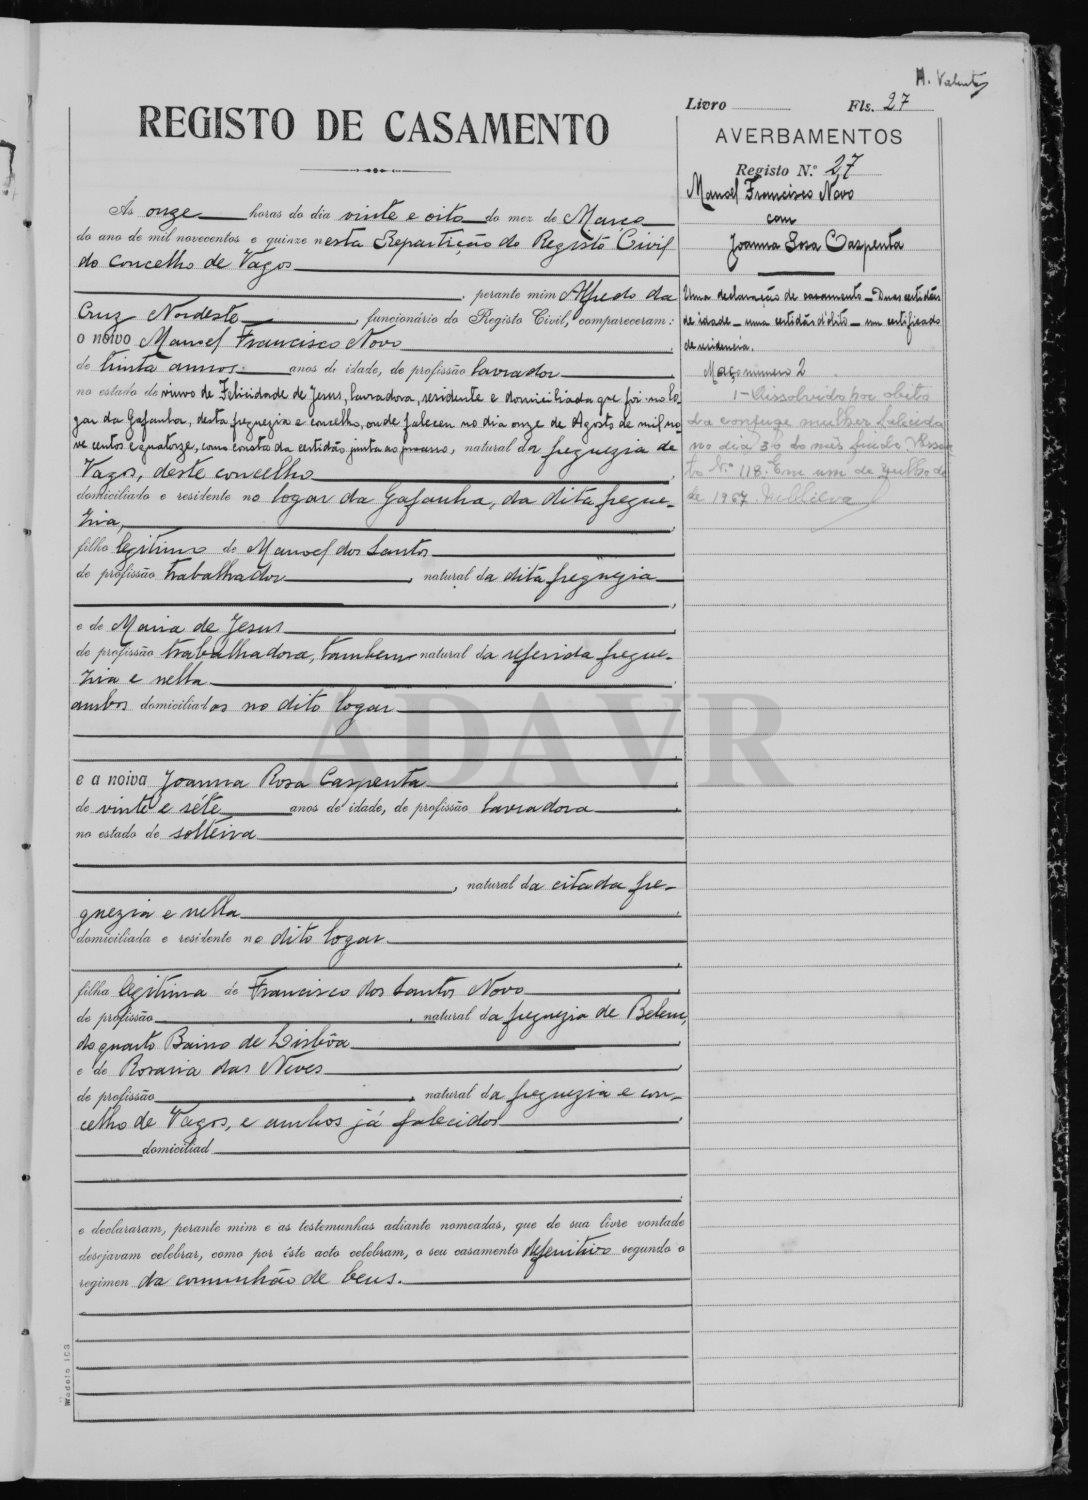 H. Valente
Livro Fls. 27
REGISTO DE CASAMENTO
AVERBAMENTOS
Registo N.º 27
Manoel Francisco Novo
com
Joanna Rosa Caspenta
Uma declaração de casamento — Duas certidões
de idade — uma certidão d'óbito — um certificado
de residencia.
Maço numero 2
1 — Dissolvido por obito
da conjuge mulher falecida
no dia 30 do mês findo. Assen-
to N.º 118. Em um de Julho
de 1967.
As onze horas do dia vinte e oito do mez de Março
do ano de mil novecentos e quinze nesta Repartição do Registo Civil
do concelho de Vagos
, perante mim Alfredo da
Cruz Nordeste, funcionário do Registo Civil, compareceram:
o noivo Manoel Francisco Novo
de trinta annos anos di idade, de profissão lavrador
no estado de viuvo de Felicidade de Jesus, lavradora, residente e domiciliada que foi no lo-
gar da Gafanha, desta freguezia e concelho, onde faleceu no dia onze de Agosto de mil no-
ve centos e quatorze, como consta da certidão junta ao processo, natural da freguezia de
Vagos, deste concelho
domiciliado e residente no logar da Gafanha, da dita fregue-
zia,
filho legitimo de Manoel dos Santos
de profissão trabalhador, natural da dita freguezia
e de Maria de Jesus
de profissão trabalhadora, tambem natural da referida fregue-
zia e nella
ambos domiciliados no dito logar
e a noiva Joanna Rosa Caspenta
de vinte e séte anos de idade, de profissão lavradora
no estado de solteira
, natural da citada fre-
guezia e nella
domiciliada e residente no dito logar
filha legitima de Francisco dos Santos Novo
de profissão, natural da freguezia de Belem,
do quarto Bairro de Lisbôa
e de Rosaria das Neves
de profissão, natural da freguezia e con-
celho de Vagos, e ambos já falecidos
domiciliad
e declararam, perante mim e as testemunhas adiante nomeadas, que de sua livre vontade
desejavam celebrar, como por êste acto celebram, o seu casamento defenitivo segundo o
regimen da comunhão de bens.
Modelo 103
ADAVR